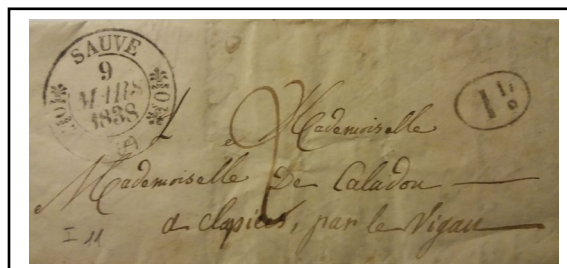 SAUVE
9
MARS
1838
2
Mademoiselle
Mademoiselle De Caladou
a clapices, par le Vigan
I 11